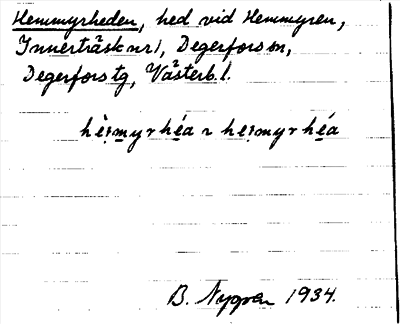 Hemmyrheden, hed vid Hemmyren,
Innerträsk nr 1, Degerfors sn,
Degerfors tg, Västerb. l.
B. Nygren 1934.